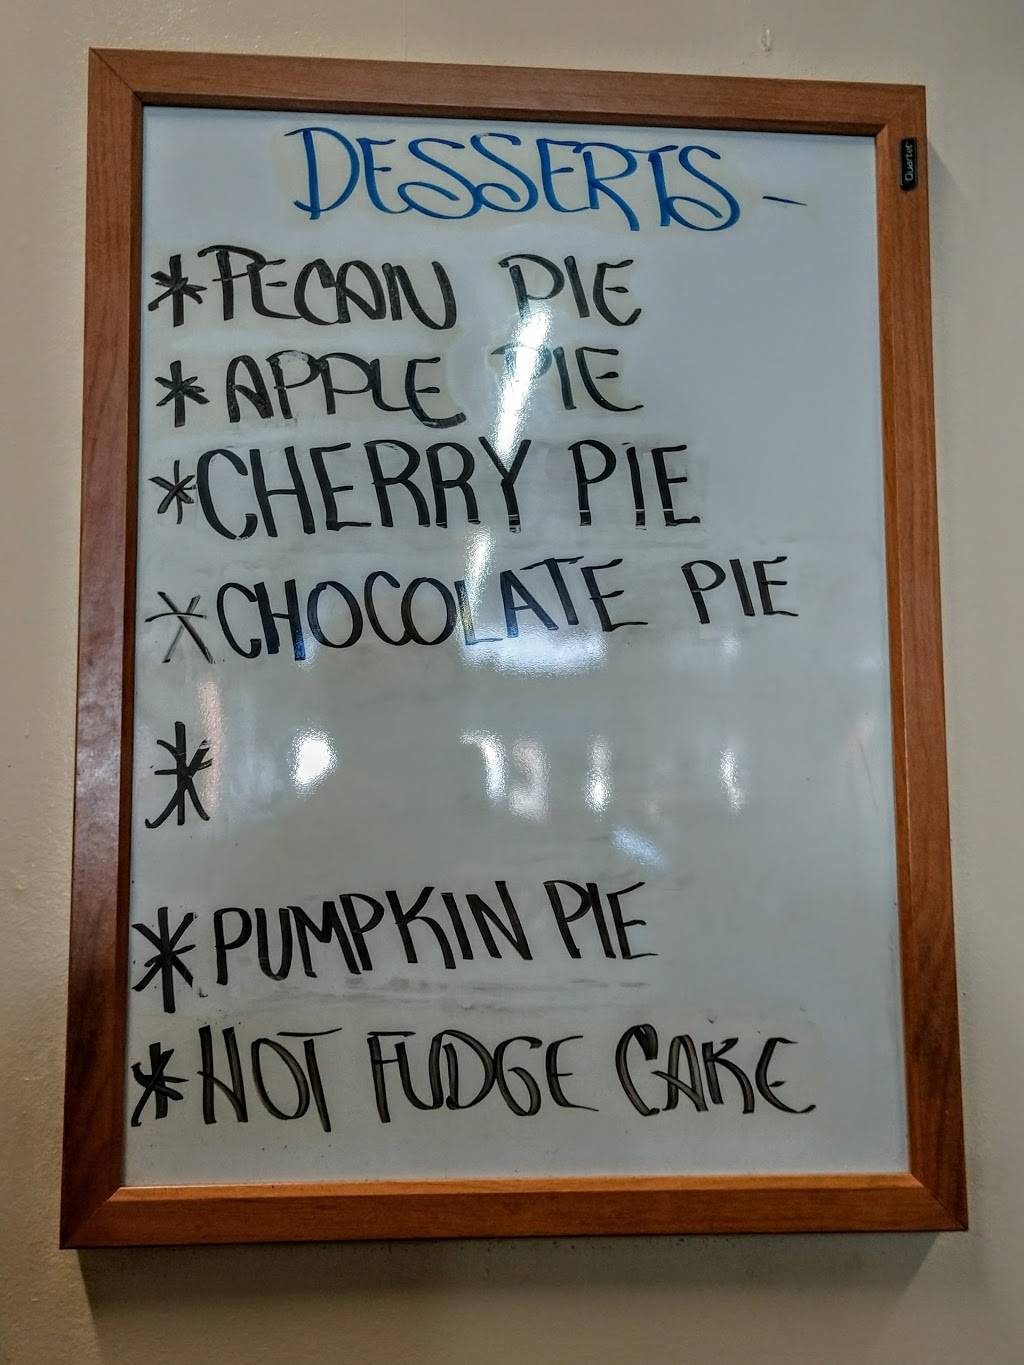 DESSERTS -
Quartet
*PECAN PIE
*APPLE PIE
*CHERRY PIE
*CHOCOLATE PIE
*
*PUMPKIN PIE
*HOT FUDGE CAKE